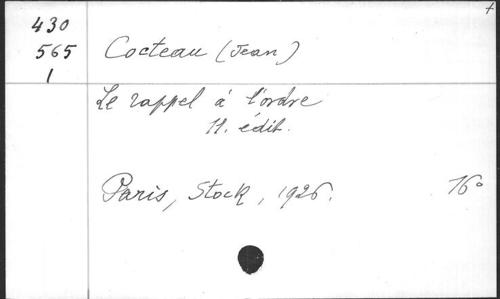 430
565
1
Cocteau (Jean)
Le rappel à l'ordre
11. édit.
Paris, Stock, 1926.
16°